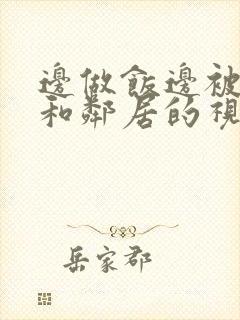 邊做飯邊被
和鄰居的視
岳家郡